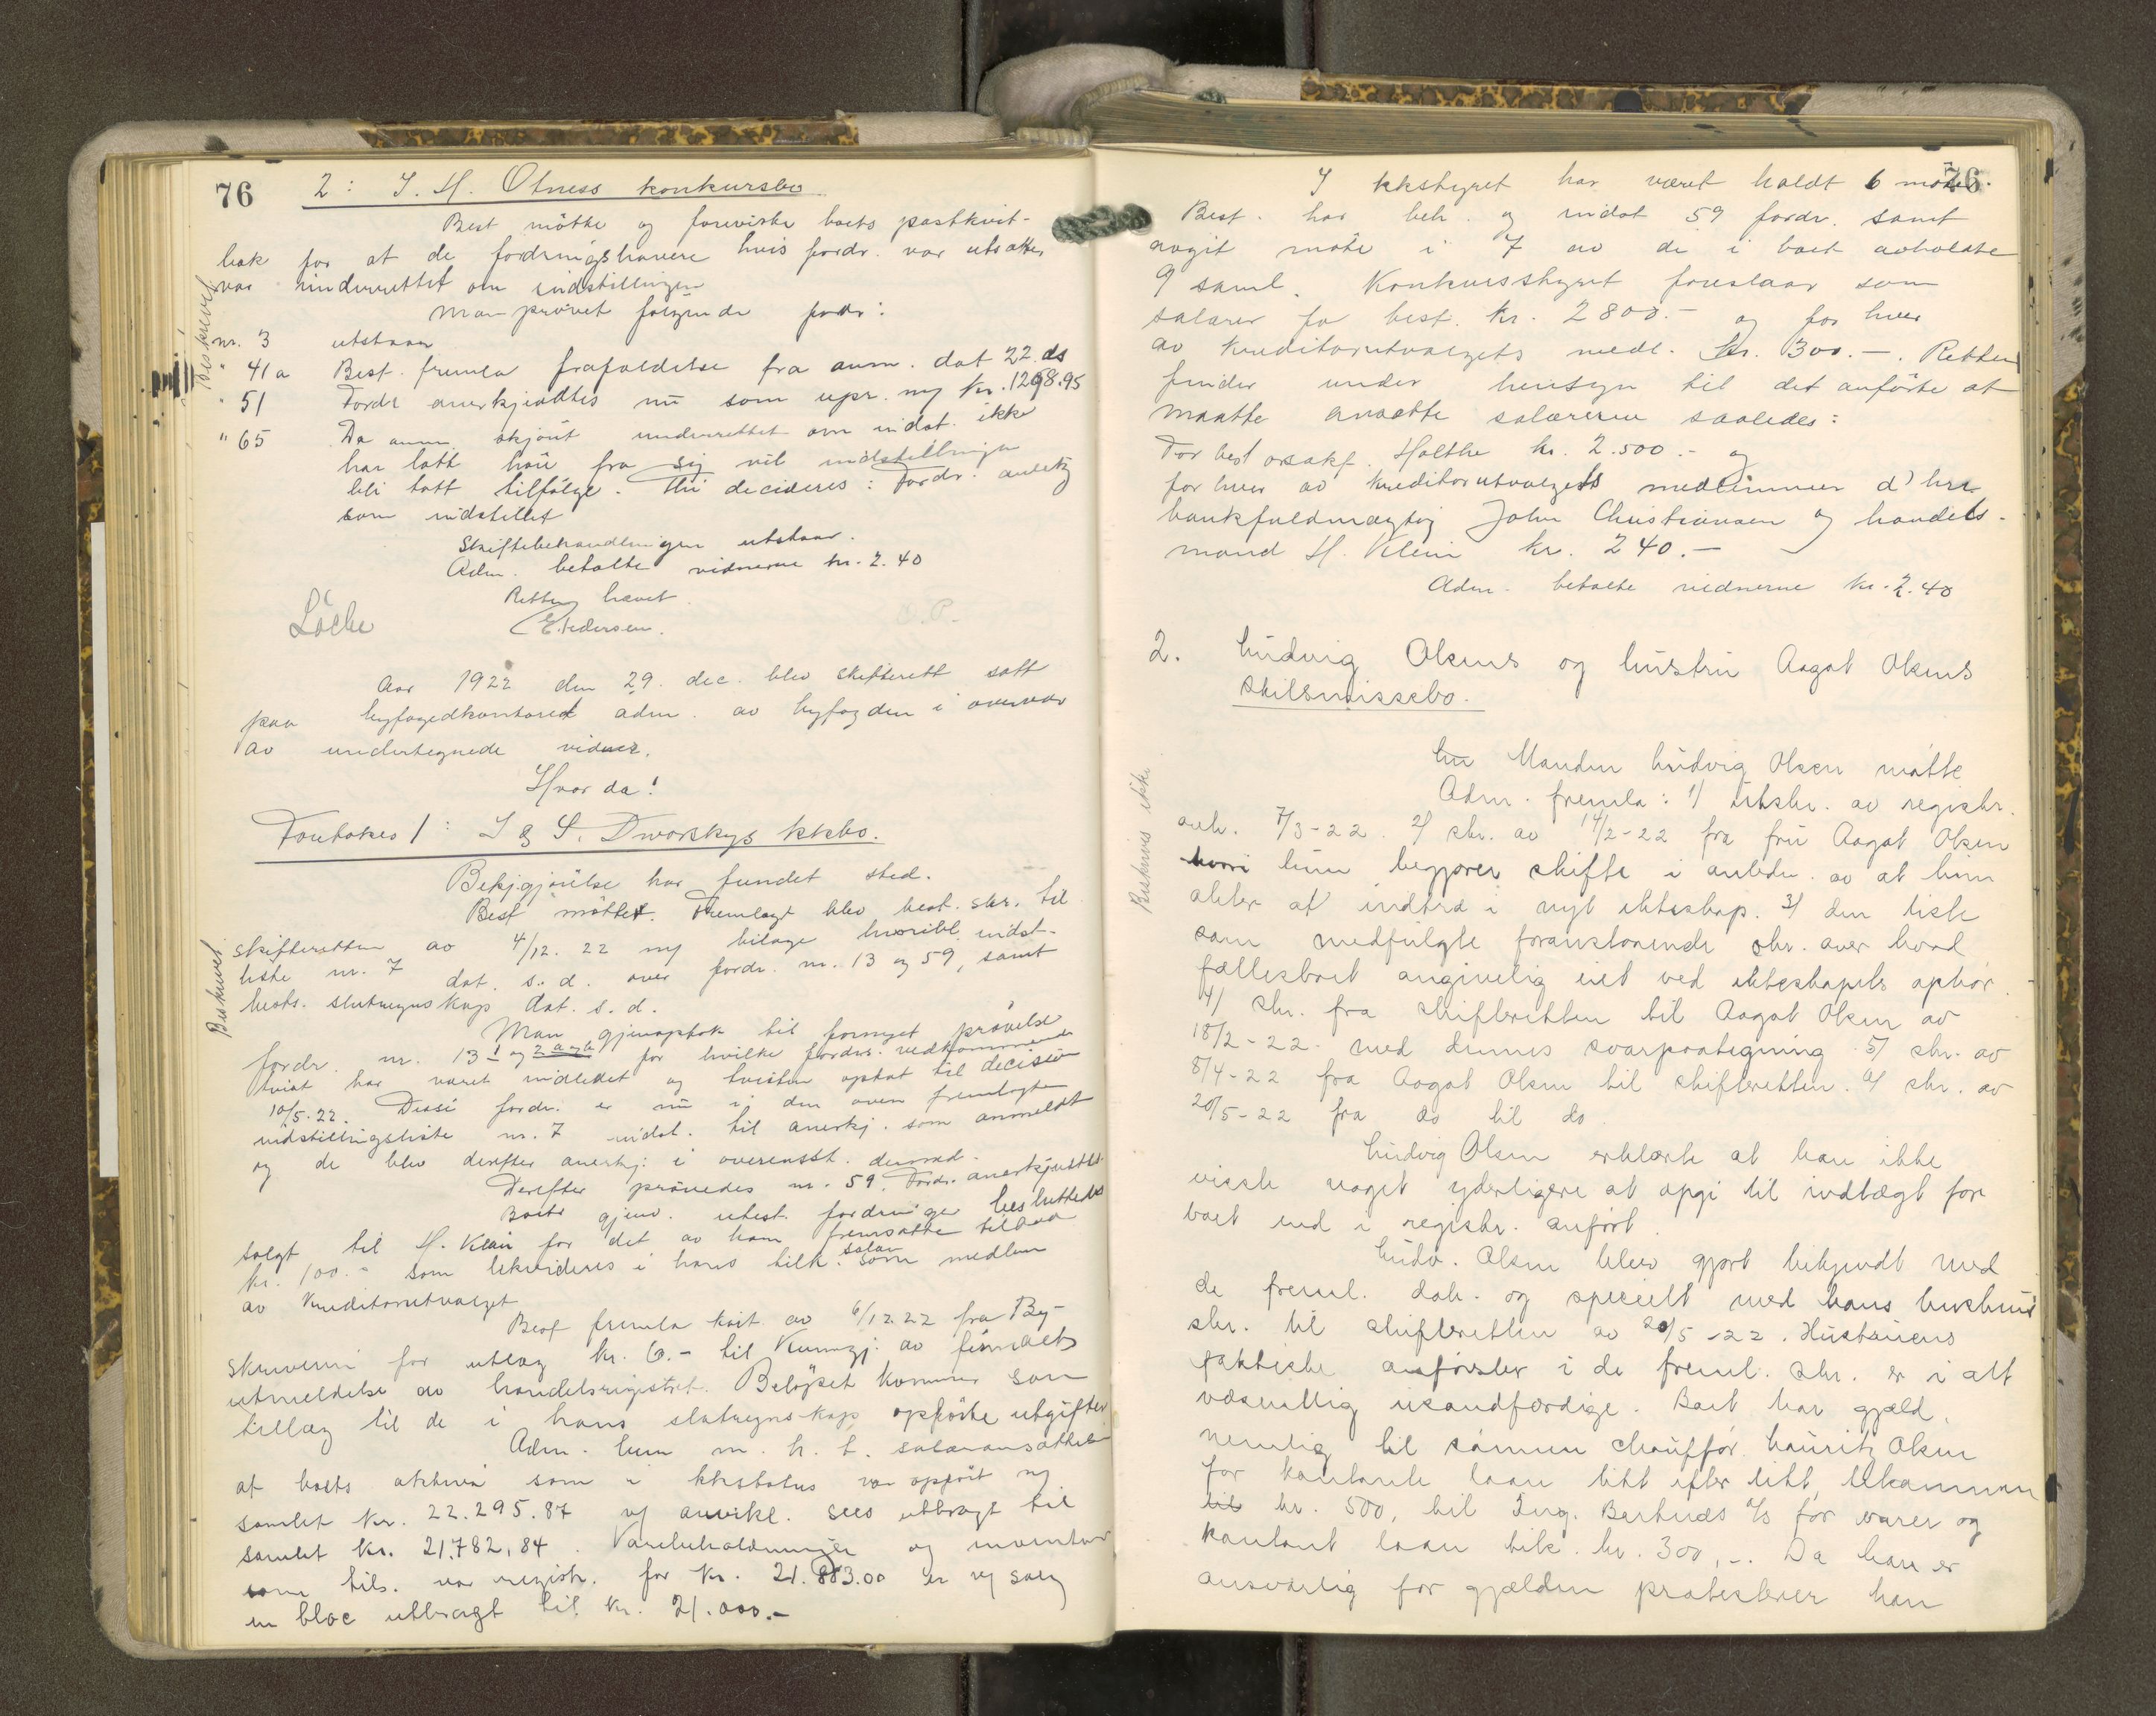 76
2: J. H. Otness konkursbo
Best møtte og foreviste boets postkvit-
bok for at de fordringshavere hvis fordr. var utsatte,
var underrettet om indstillingen
Man prøvet følgende fordr:
nr. 3 utstaar
" 41a Best. fremla frafaldelse fra anm. dat 22. ds
" 51 Fordr anerkjendtes nu som upr. m/ kr. 1268.95
" 65 Da anm. skjønt underrettet om indst. ikke
har latt høre fra sig vil indstillingen
bli tatt tilfølge. Thi decideres: Fordr.
som indstillet
Skiftebehandlingen utstaar.
Adm. betalte vidnerne kr. 2.40
Retten hævet
Løcke E. Pedersen. O. P.
Beskrevet
Aar 1922 den 29. dec. blev skifterett satt
paa byfogedkontoret adm. av byfogden i overvær
av undertegnede vidner.
Hvor da!
Foretokes 1: I & S. Dworskys kkbo.
Bekjgjørelse har fundet sted.
Best møtte. Fremlagt blev best. skr. til
skifteretten av 4/12. 22 m/ bilage hvoribl. indst-
liste nr. 7 dat. s. d. over fordr. nr. 13 og 59, samt
bests. slutregnskap dat. s. d.
Beskrevet
Man gjenoptok til fornyet prøvelse
fordr. nr. 13 1 og 2 a og b for hvilke fordr. vedkommende
tvist har været indledet og tvisten optat til decision
10/5. 22. Disse fordr. er nu i den oven fremlagte
indstillingsliste nr. 7 indst. til anerkj. som anmeldt
og de blev derefter anerkj. i overensst. dermed.
Derefter prøvedes nr. 59. Fordr. anerkjendtes.
Boets gjenv. utest. fordringer besluttedes
solgt til H. Klein for det av ham fremsatte tilbud
kr. 100.- som likvideres i hans tilk. salær som medlem
av kreditorutvalget
Best fremla kvit av 6/12 22 fra By-
skriveren for utlæg kr. 6.- til kunngj. av firmaets
utmeldelse av handelsregistret. Beløpet kommer som
tillæg til de i hans slutregnskap opførte utgifter
Adm. bem m. h. t. salæransættelsen
at boets aktiva som i kkstatus var opført m/
samlet kr. 22.295.87 v/ avvikl. sees utbragt til
samlet kr. 21.782,84. Varebeholdningen og inventar
som tils. var registr. for kr. 21.883.00 er v/ salg
en bloc utbragt til kr. 21.000.-
76
I kkstyret har været holdt 6 møter.
Best. har beh. og indst 59 fordr. samt
avgit møte i 7 av de i boet avholdte
9 saml. Konkursstyret foreslaar som
salærer for best. kr. 2800.- og for hver
av kreditorutvalgets medl. kr. 300.-. Retten
finder under hensyn til det anførte at
maatte ansætte salærerne saaledes:
For best osakf. Holthe kr. 2.500.- og
for hver av kreditorutvalgets medlemmer d'hrr
bankfuldmægtig John Christiansen og handels-
mand H. Klein kr. 240.-
Adm. betalte vidnerne kr. 2.40
2. Ludvig Olsens og hustru Aagot Olsens
skilsmissebo.
Manden Ludvig Olsen møtte
Adm. fremla: 1) utskr. av registr.
avh. 7/3-22. 2) skr. av 14/2-22 fra fru Aagot Olsen
hvori hun begjærer skifte i anledn. av at hun
akter at indtræ i nyt ekteskap. 3) den liste
som medfulgte foranstaaende skr. over hvad
fællesboet angivelig eiet ved ekteskapets ophør.
4) skr. fra skifteretten til Aagot Olsen av
18/2-22 med dennes svarpaategning 5) skr. av
8/4-22 fra Aagot Olsen til skifteretten. 6) skr. av
20/5-22 fra do til do.
Beskrives ikke
Ludvig Olsen erklærte at han ikke
visste noget yderligere at opgi til indtægt for
boet end i registr. anført.
Ludv. Olsen blev gjort bekjendt med
de freml. dok. og specielt med hans hustrus
skr. til skifteretten av 20/5-22. Hustruens
faktiske anførsler i de freml. skr. er i alt
væsentlig usandfærdige. Boet har gjæld,
nemlig til sønnen chauffør Lauritz Olsen
for kontante laan litt efter litt, tilsammen
til kr. 500, til Ing. Bertnæs A/S for varer og
kontant laan tils. kr. 300,-. Da han er
ansvarlig for gjælden protesterer han